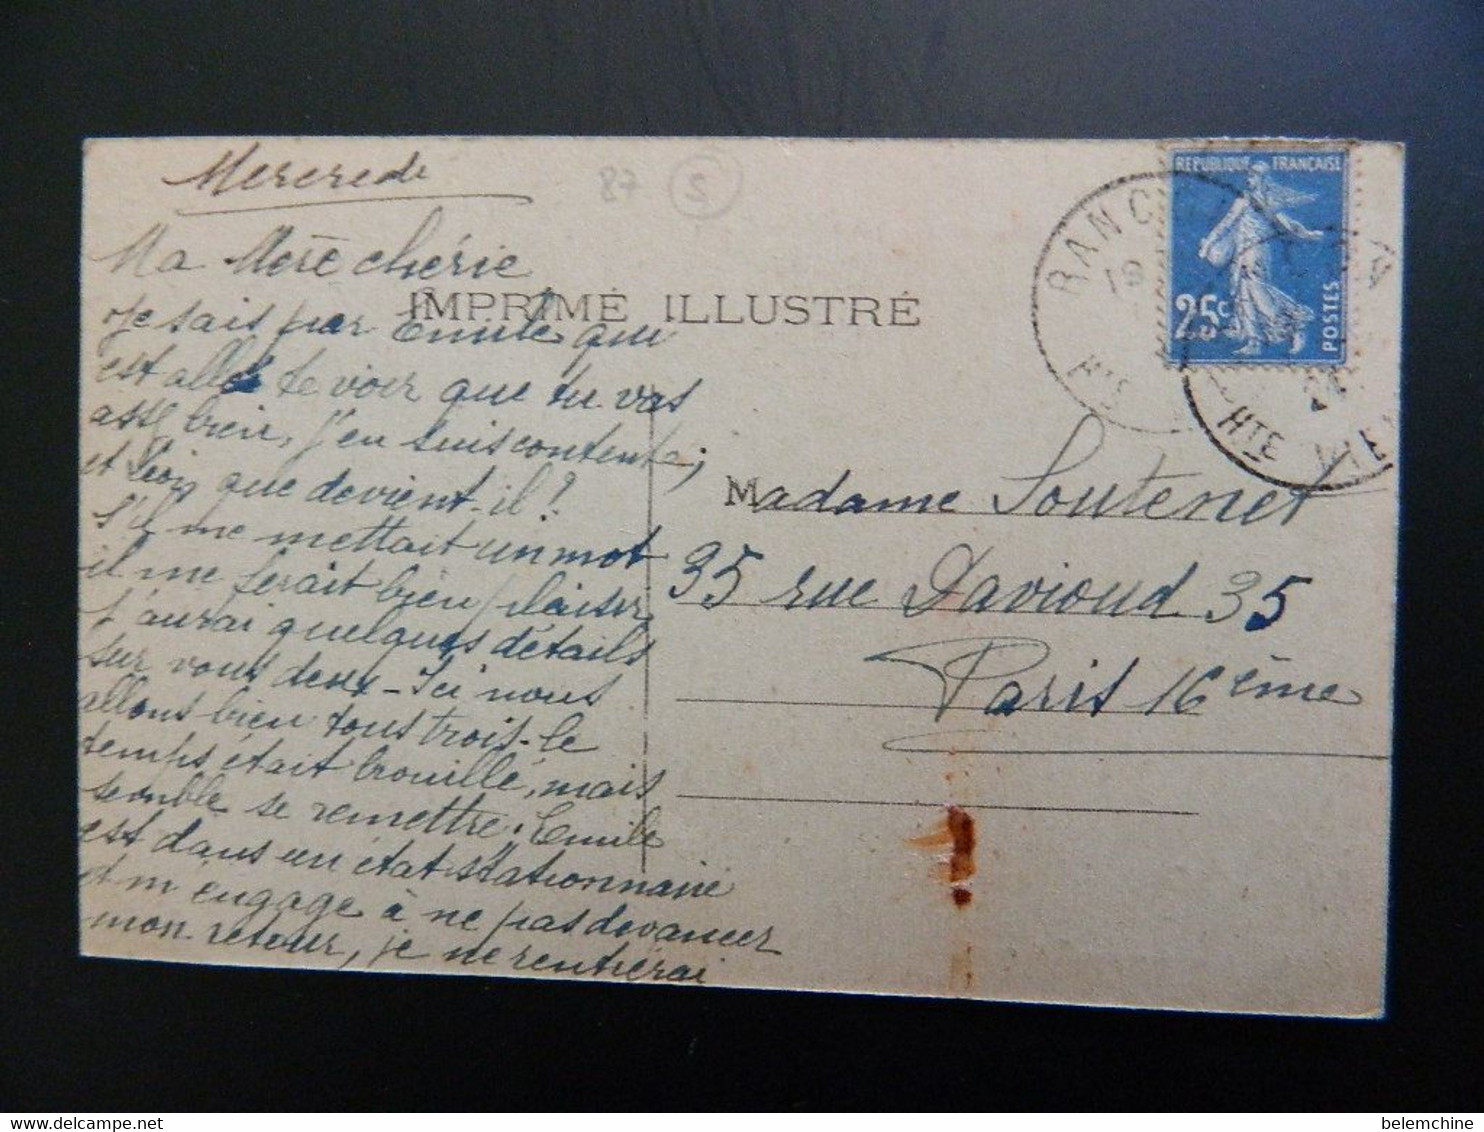 Mercredi
87 S
Ma Mère chérie
IMPRIMÉ ILLUSTRÉ
Je sais par Emile qui
est allé te voir que tu vas
assez bien, j'en suis contente;
et Léon, que devient-il?
s'il me mettait un mot
il me ferait bien plaisir
j'aurai quelques détails
sur vous deux - Ici nous
allons bien tous trois - le
temps était brouillé, mais
semble se remettre. Emile
est dans un état stationnaire
et m'engage à ne pas devancer
mon retour, je ne rentrerai
REPUBLIQUE FRANÇAISE
25c
POSTES
RANCON
19
HTE VIE
Madame Soutenet
35 rue Davioud 35
Paris 16ème
belemchine